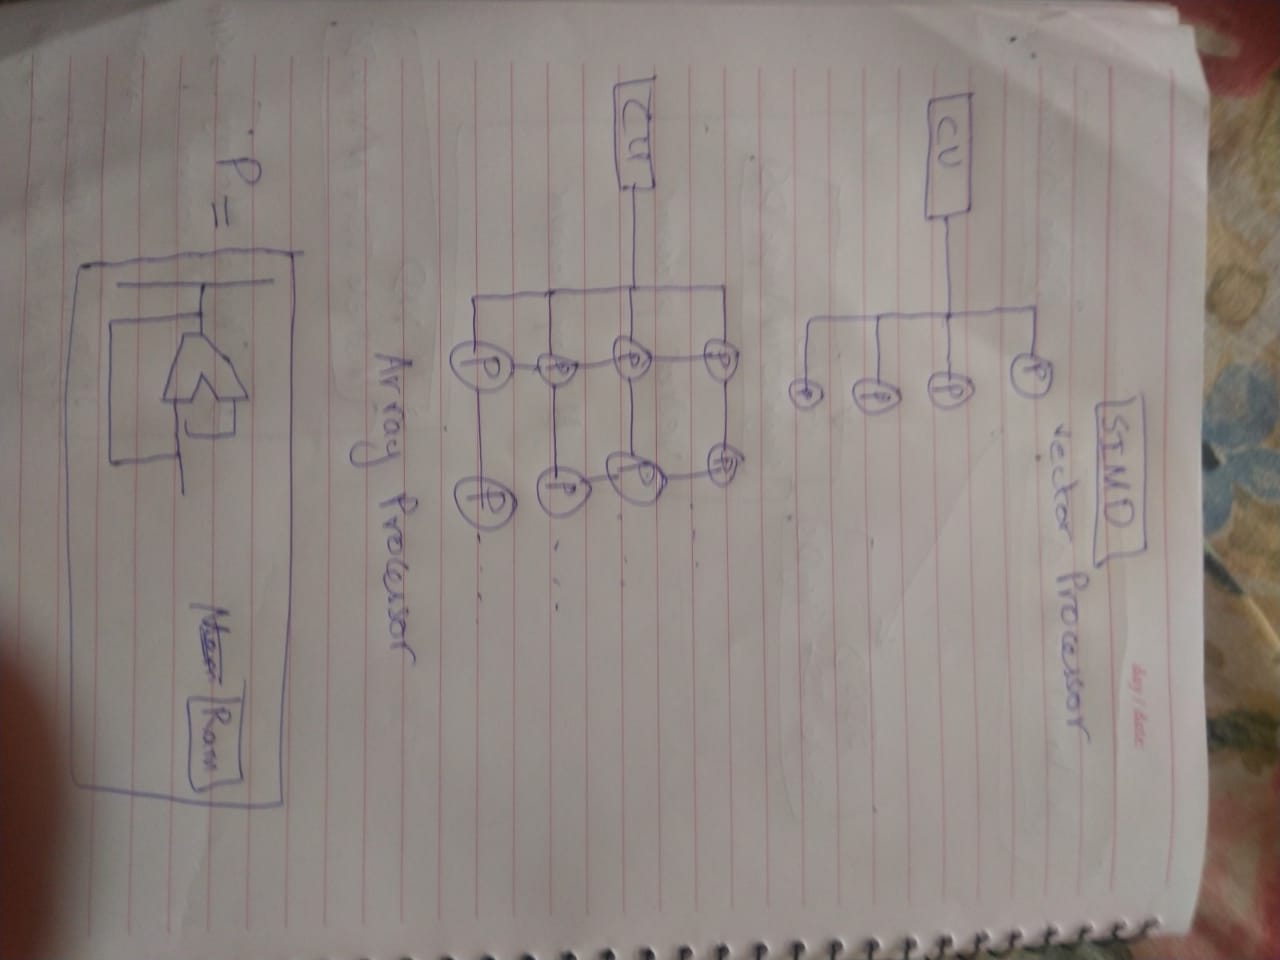 day / date
SIMD
Vector Processor
CU
P
P
P
P
CU
P P
P P
P P
P P
Array Processor
P =
Ram